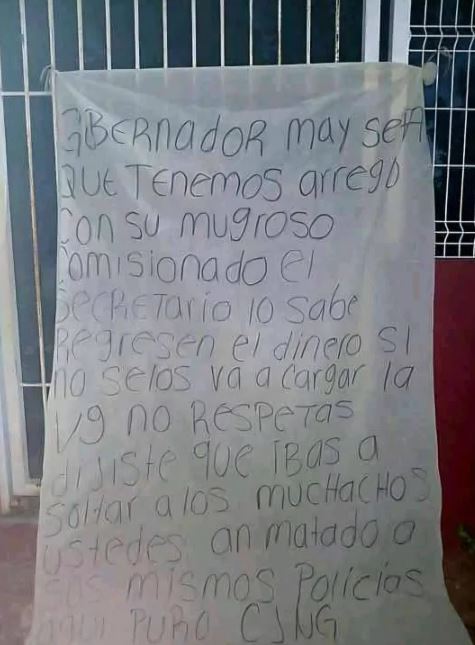 GOBERNADOR MAY SEPA
QUE TENEMOS arreglo
Con su mugroso
Comisionado el
SECRETario lo sabe
Regresen el dinero si
no selos va a Cargar la
Vg no RESPETAS
dijiste que iBas a
soltar a los mucHacHos
ustedes an matado a
sus mismos Policias
aqui PURO CJNG